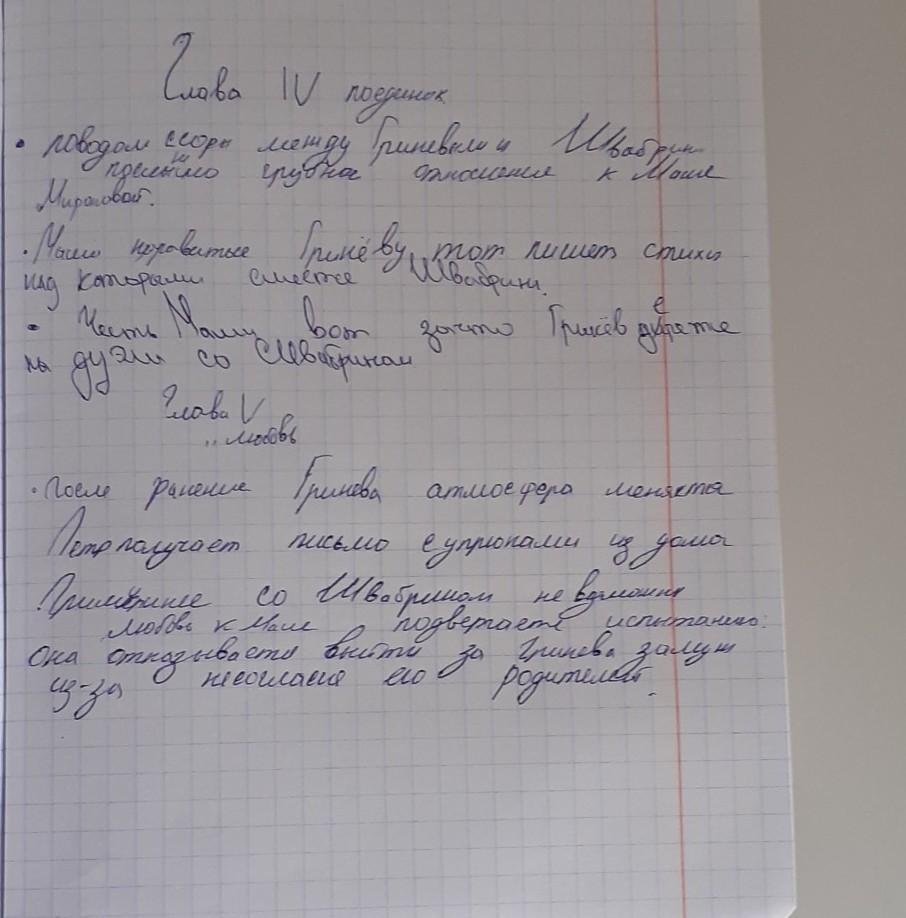 Глава IV поединок
• поводом ссоры между Гриневым и Швабрин
грубое отношение к Маше
Мироновой.
• Маша нравиться Гринёву, тот пишет стихи
над которыми смеется Швабрин.
• Честь Маши вот зачто Гринёв дерется
на дуэли со Швабриным
Глава V
„ любовь
• После ранение Гринева атмосфера меняется
Петр получает письмо с упреками из дома
Примирение со Швабрином не возможно
любовь к Маше подвергается испытанию:
Она отказывается выйти за Гринева замуж
из-за несогласие его родителей.